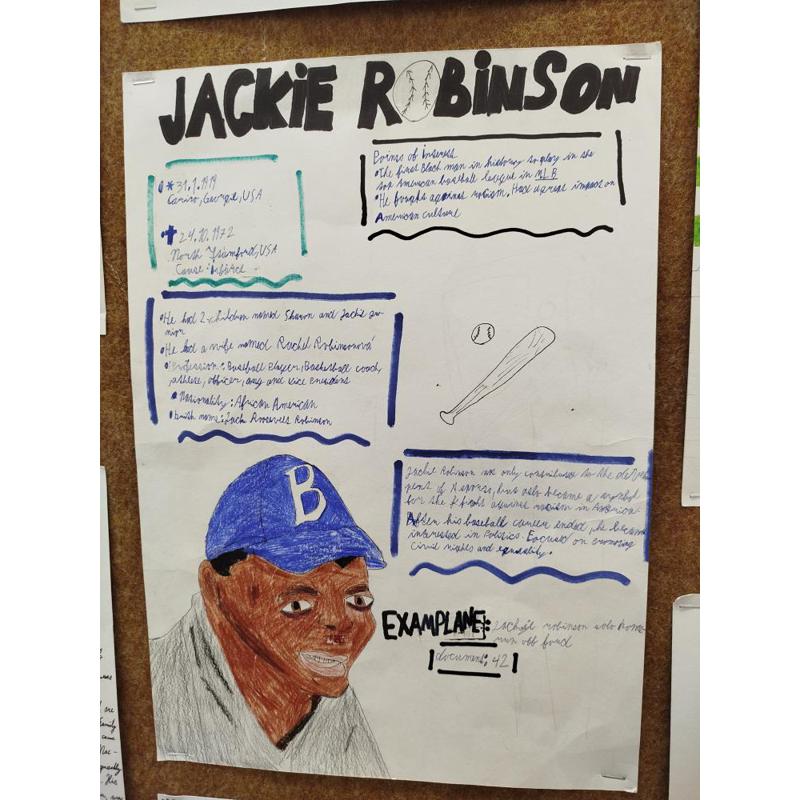 JACKiE ROBiNSON
* 31.1.1919
Cairo, Georgie, USA
✝ 24.10.1972
North Stamford, USA
Cause: infarct
Points of interest
•The first Black man in history to play in the
top American baseball league in MLB
•He fought against racism. Had a great impact on
American culture
•He had 2 children named Sharon and Jackie ju-
nior
•He had a wife named Rachel Robinsonová
•Profession: Baseball player, Basketball coach,
athlete, officer, and vice president
•Nationality: African American
•birth name: Jack Roosevelt Robinson
B
Jackie Robinson not only contributed to the
of but also became a symbol
for the fight against racism in America
After his baseball career ended, he became
interested in Politics. Focused on
Civil rights and equality.
EXAMPLANE: Jackie robinson
document: 42